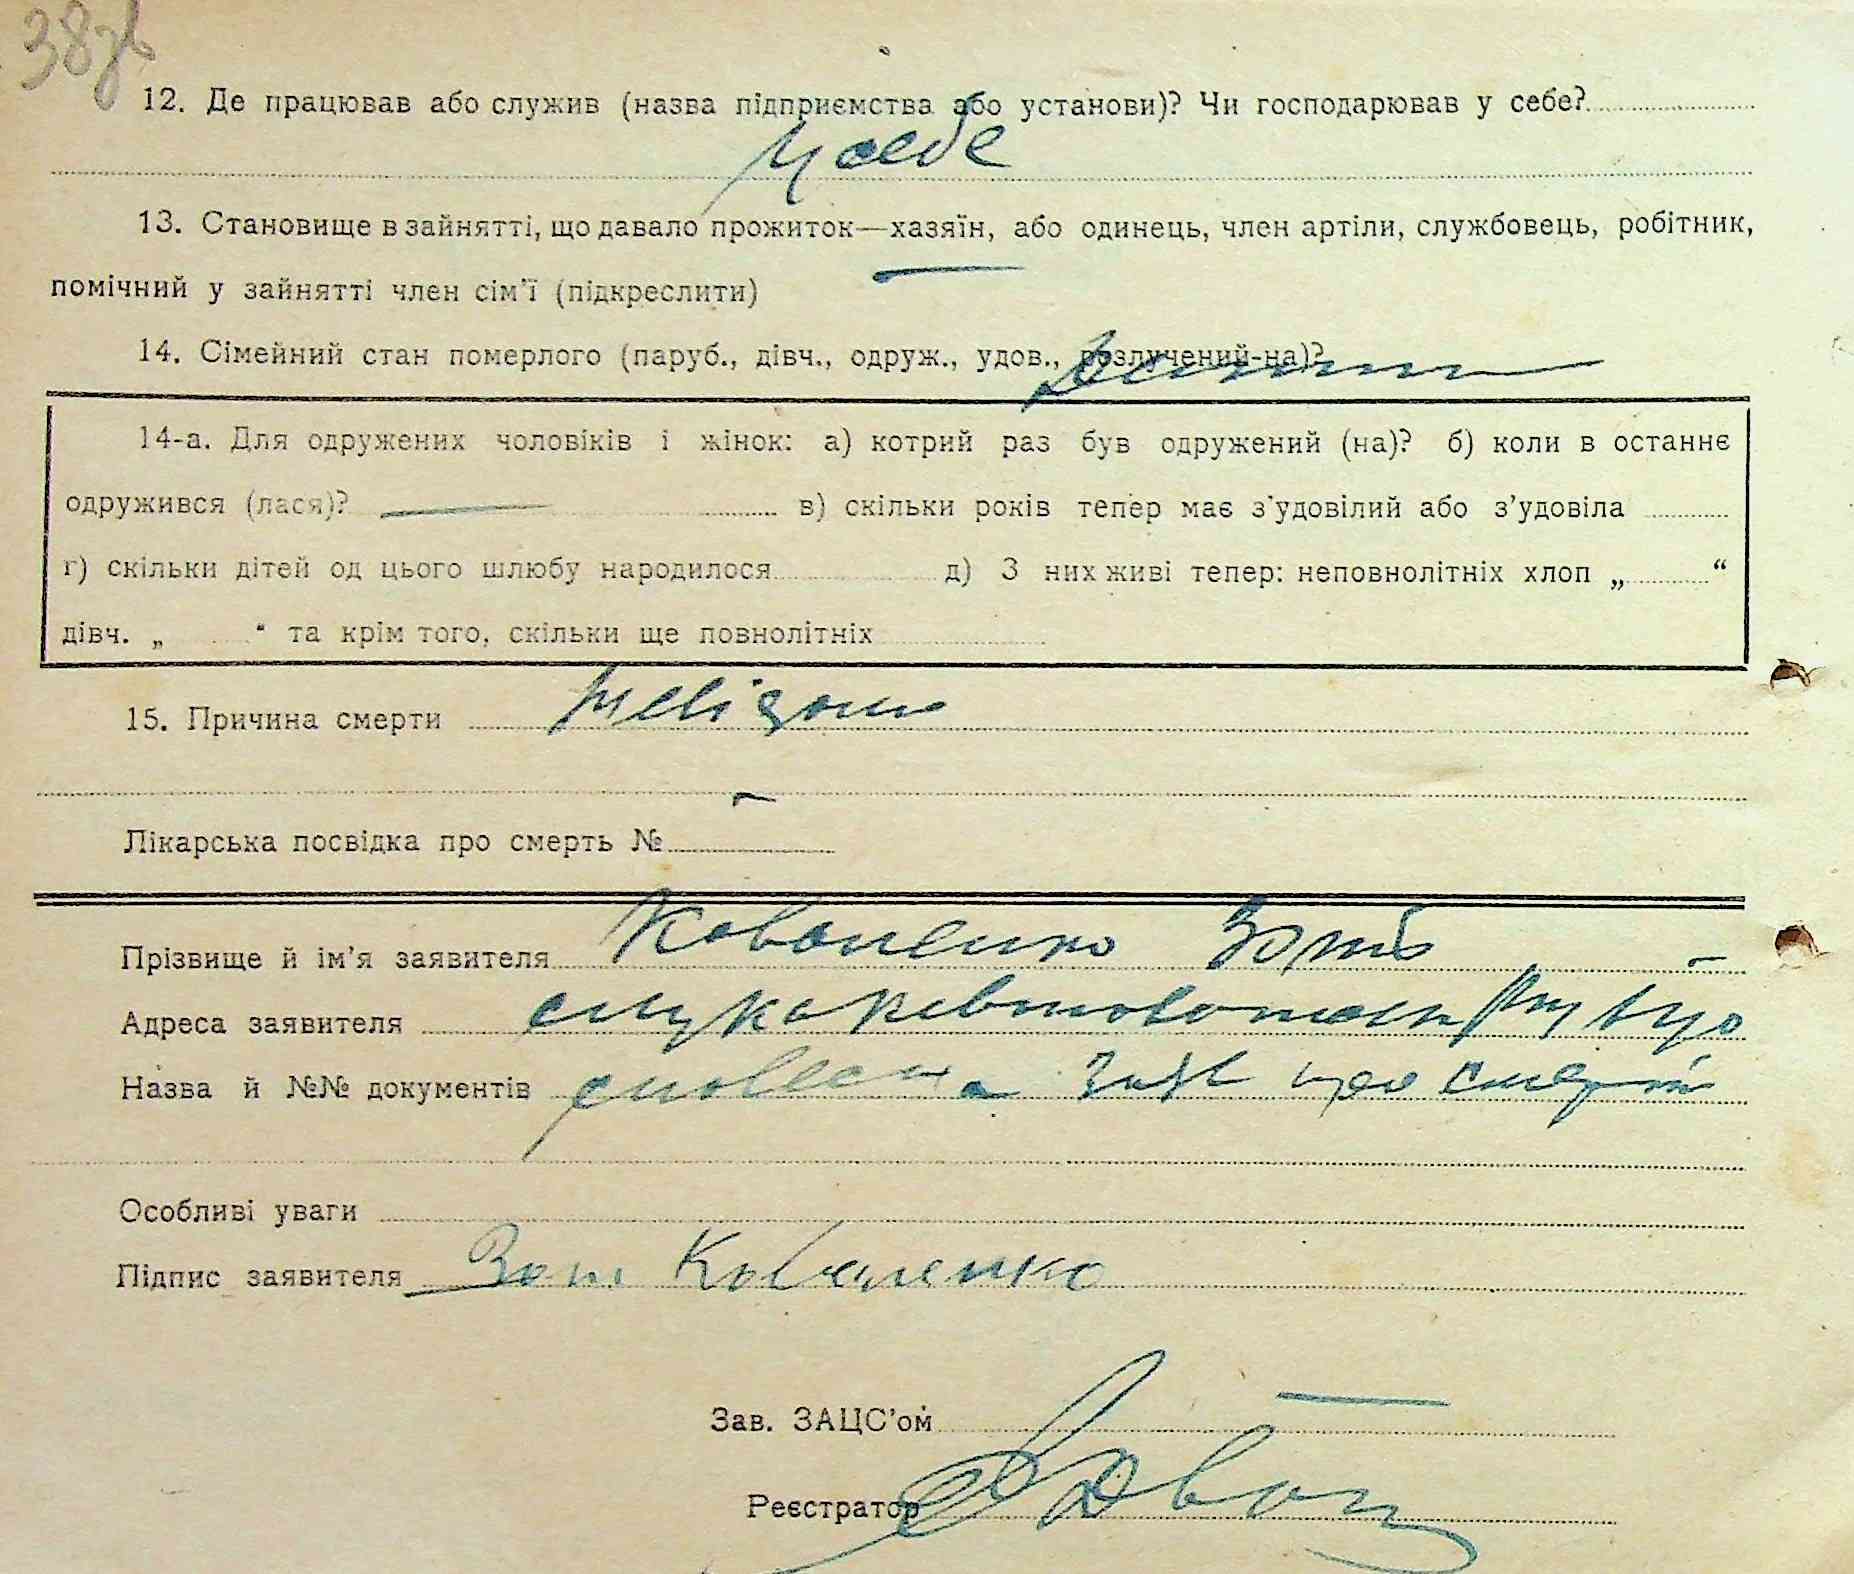 38зв
12. Де працював або служив (назва підприємства або установи)? Чи господарював у себе?
У себе
13. Становище в зайнятті, що давало прожиток—хазяїн, або одинець, член артіли, службовець, робітник,
помічний у зайнятті член сім'ї (підкреслити)
14. Сімейний стан померлого (паруб., дівч., одруж., удов., розлучений-на)?
14-а. Для одружених чоловіків і жінок: а) котрий раз був одружений (на)? б) коли в останнє
одружився (лася)? — в) скільки років тепер має з'удовілий або з'удовіла
г) скільки дітей од цього шлюбу народилося д) З них живі тепер: неповнолітніх хлоп „ “
дівч. „ “ та крім того, скільки ще повнолітніх
15. Причина смерти невідома
Лікарська посвідка про смерть № —
Прізвище й ім'я заявителя Коваленко Зот
Адреса заявителя
Назва й №№ документів словесна заяв про смерть
Особливі уваги
Підпис заявителя Зот Коваленко
Зав. ЗАЦС'ом —
Реєстратор